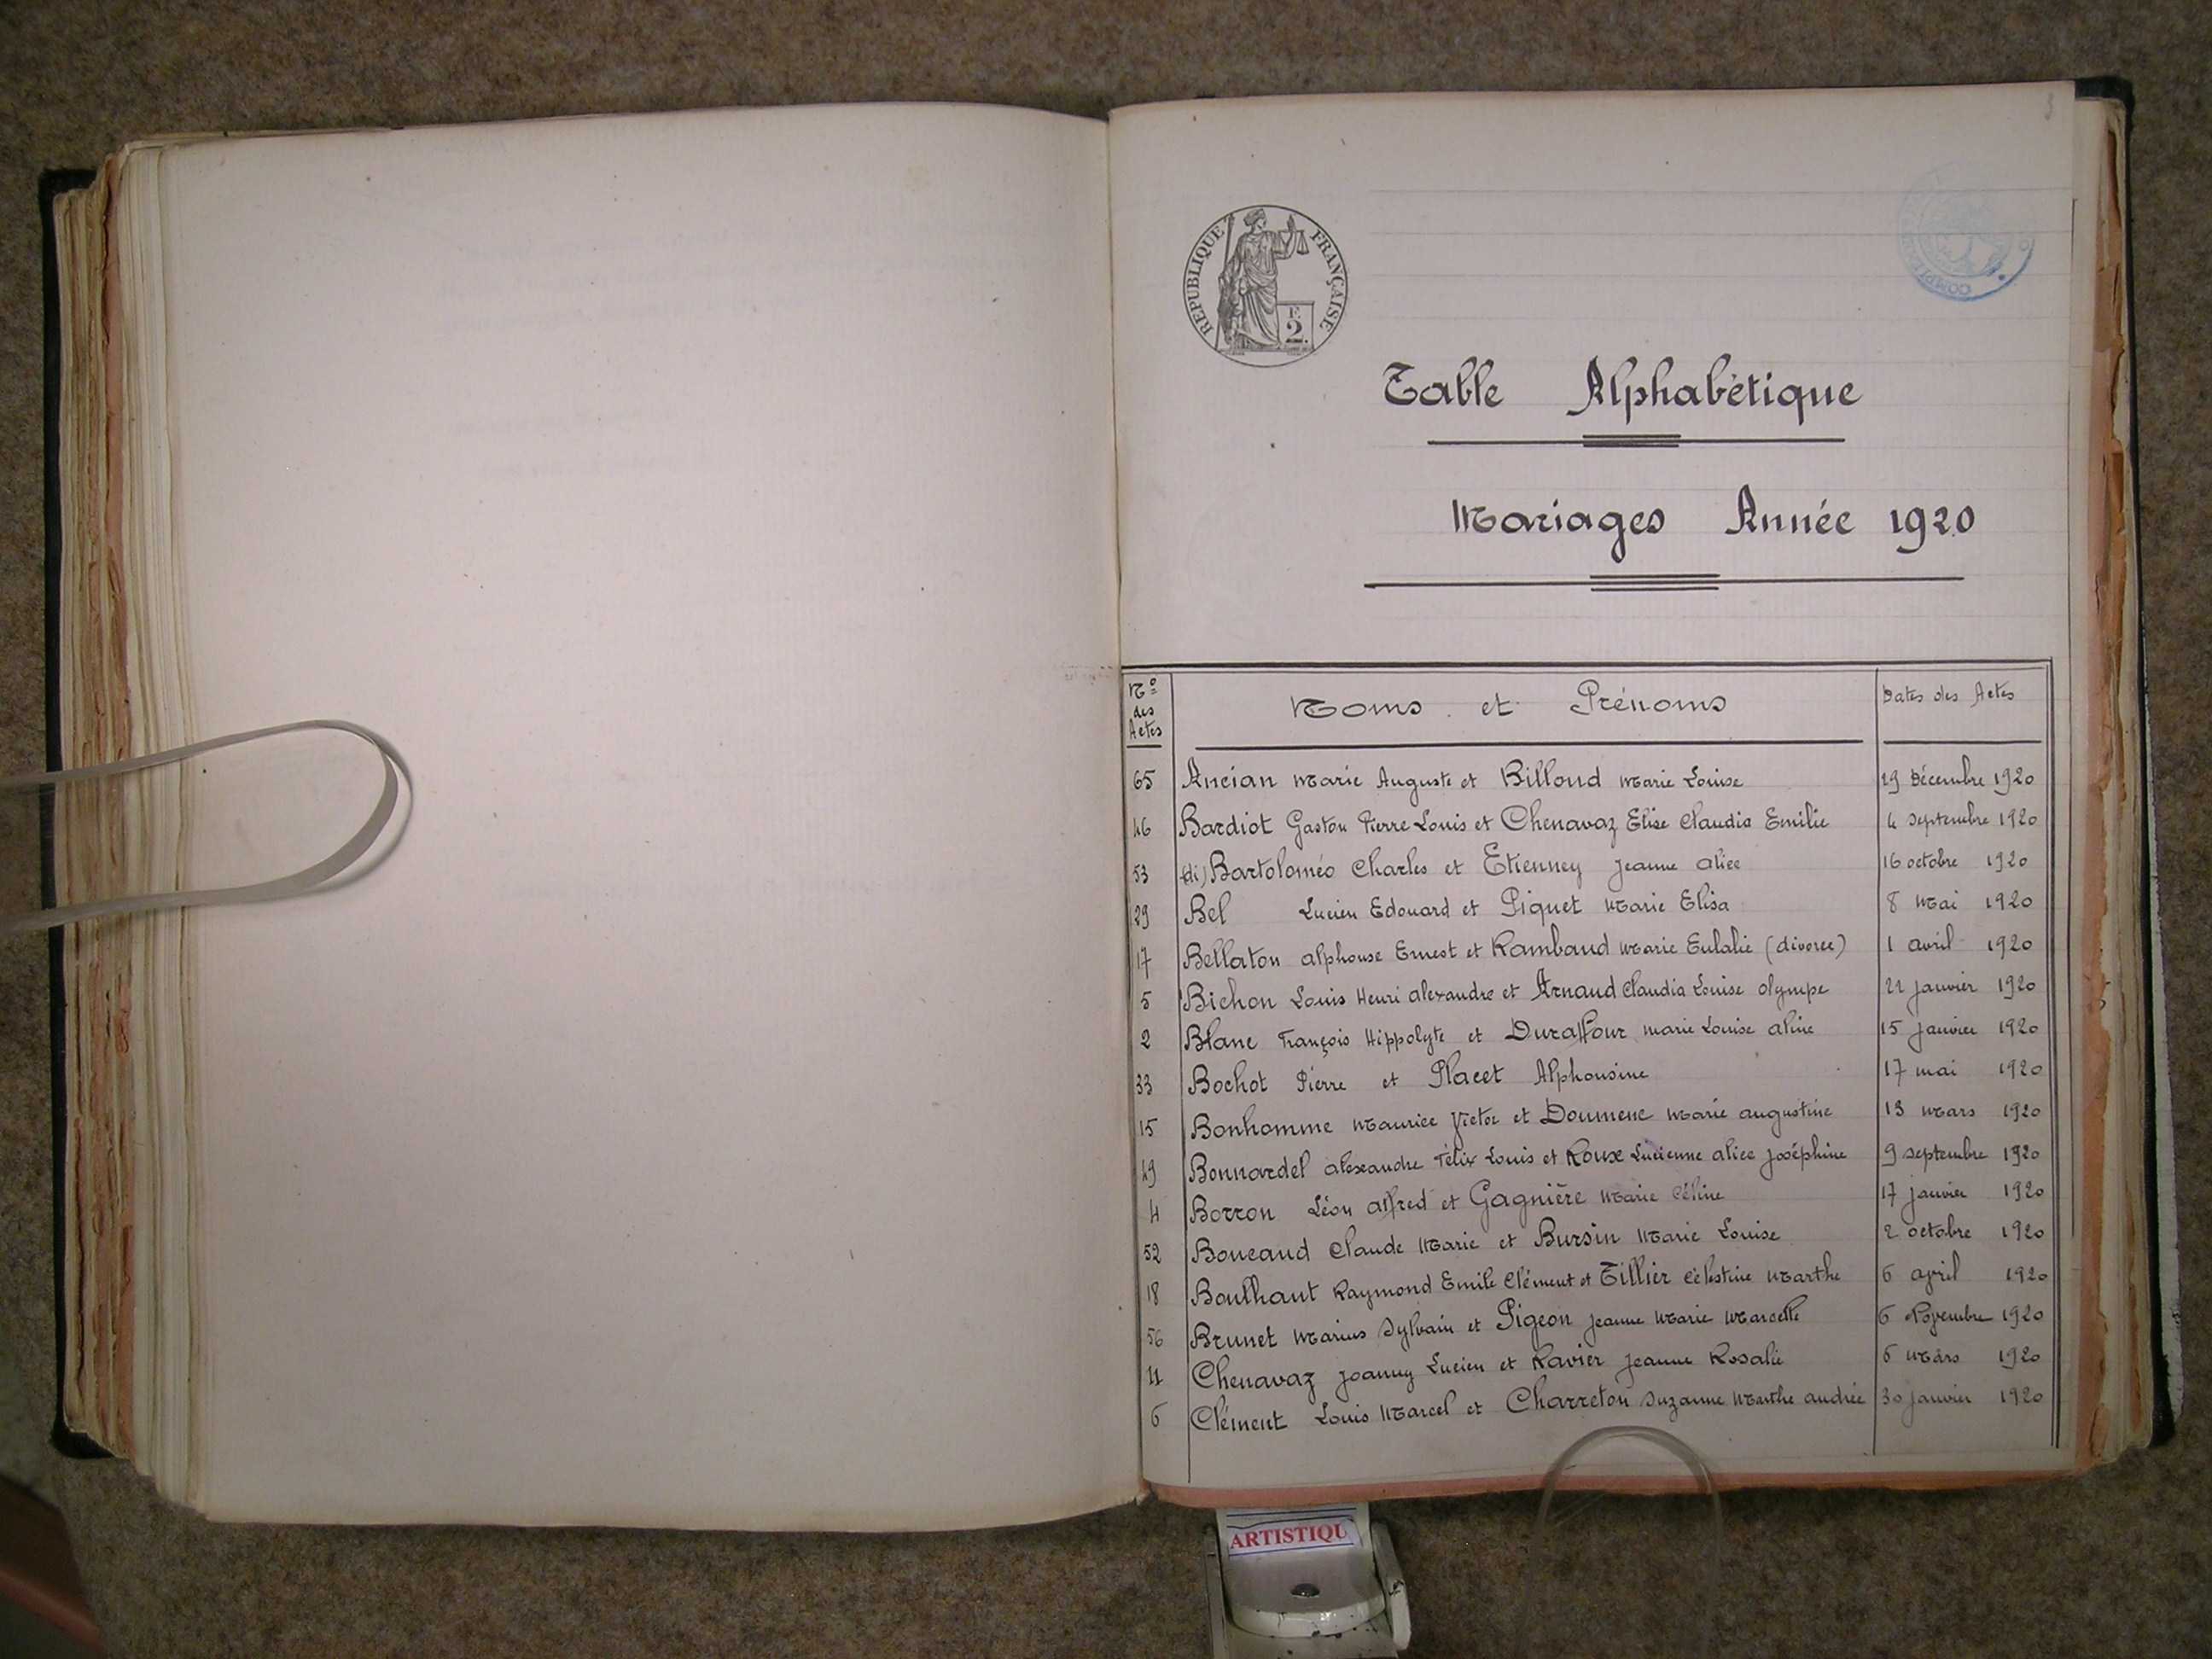 3
RÉPUBLIQUE FRANÇAISE
F.
2.
COMPLÉMENT
Table Alphabétique
Mariages Année 1920
No des Actes Noms et Prénoms Dates des Actes
65 Ancian Marie Auguste et Billoud Marie Louise 29 Décembre 1920
46 Bardiot Gaston Pierre Louis et Chenavaz Elise Claudia Emilie 4 septembre 1920
53 (di) Bartoloméo Charles et Etienney Jeanne alice 16 octobre 1920
29 Bel Lucien Edouard et Piquet Marie Elisa 8 Mai 1920
17 Bellaton alphonse Ernest et Rambaud Marie Eulalie (divorcée) 1 avril 1920
5 Bichon Louis Henri alexandre et Arnaud Claudia Louise olympe 22 janvier 1920
2 Blanc François Hippolyte et Duraffour marie Louise aline 15 janvier 1920
33 Bochot Pierre et Placet Alphonsine 17 mai 1920
15 Bonhomme Maurice Victor et Doumenc Marie augustine 13 Mars 1920
49 Bonnardel alexandre Félix Louis et Roux Lucienne alice joséphine 9 septembre 1920
4 Borron Léon alfred et Gagnière Marie Céline 17 janvier 1920
52 Boucaud Claude Marie et Bursin Marie Louise 2 octobre 1920
18 Boulhaut Raymond Emile Clément et Tillier Célestine Marthe 6 avril 1920
56 Brunet Marius Sylvain et Pigeon Jeanne Marie Marcelle 6 Novembre 1920
11 Chenavaz Joanny Lucien et Ravier Jeanne Rosalie 6 Mars 1920
6 Clément Louis Marcel et Charreton Suzanne Marthe andrée 30 janvier 1920
ARTISTIQU